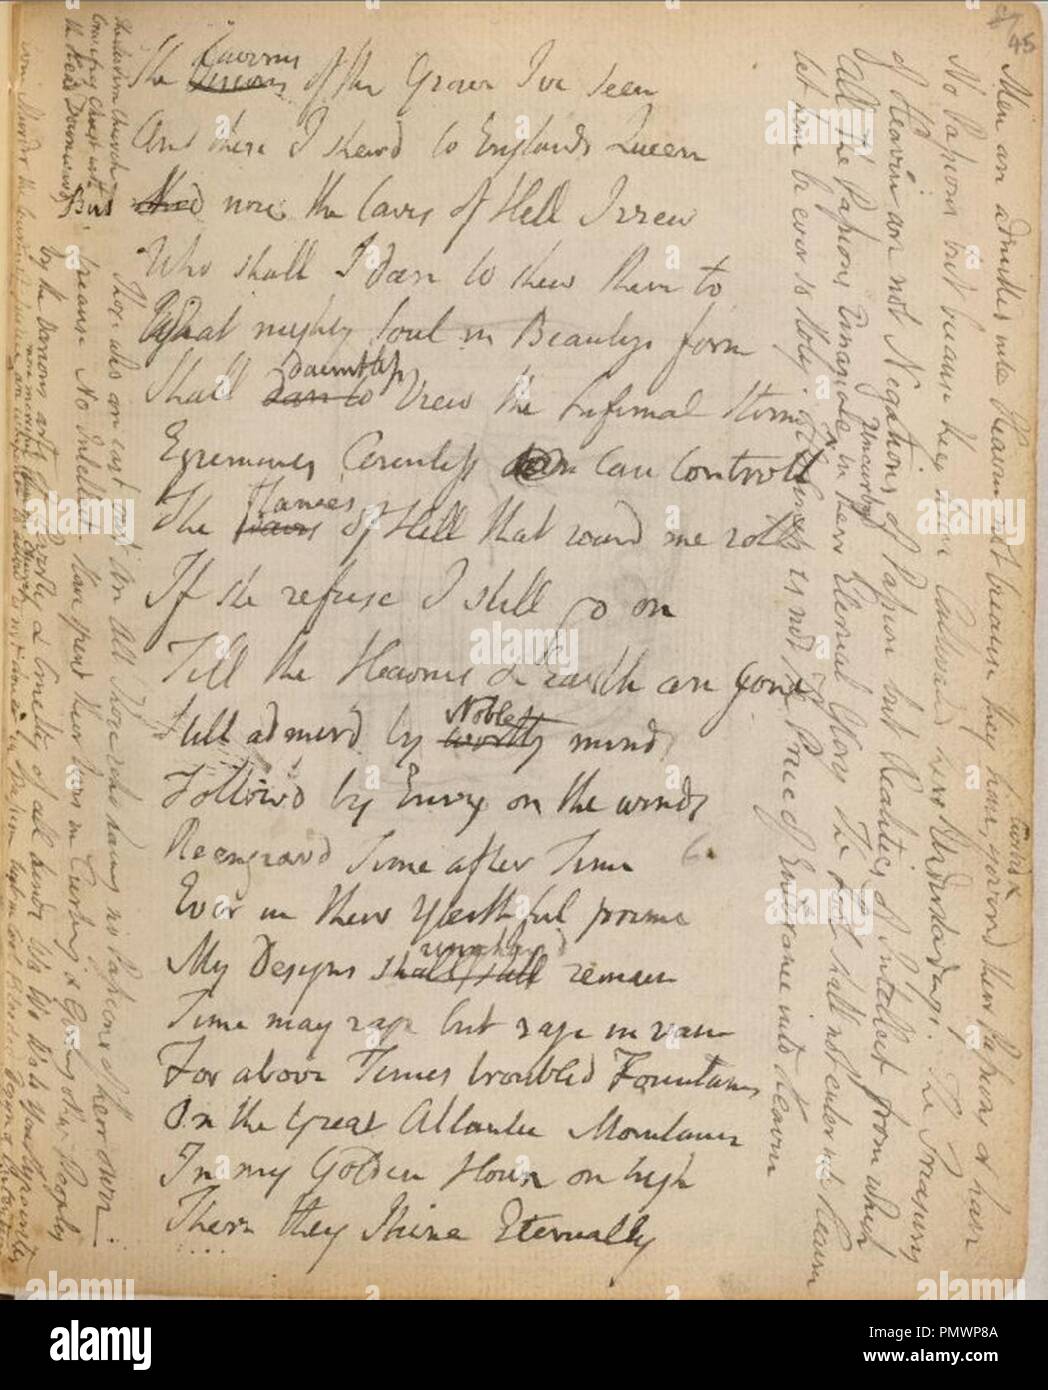 45
Caverns
The Visions of the Grave Ive seen
And these I shewd to Englands Queen
But now the Caves of Hell I view
Who shall I dare to shew them to
What mighty Soul in Beautys form
Shall dauntless View the Infernal Storm
Egremonts Countess can controll
The flames of Hell that round me roll
If she refuse I still go on
Till the Heavens & Earth are gone
Still admird by Noble minds
Followd by Envy on the winds
Reengravd Time after Time
Ever in their youthful prime
My Designs unchangd remain
Time may rage but rage in vain
For above Times troubled Fountains
On the Great Atlantic Mountains
In my Golden House on high
There they Shine Eternally
Men are admitted into Heaven not because they have curbed & governd their Passions or have
No Passions but because they have Cultivated their Understandings. The Treasures
of Heaven are not Negations of Passion but Realities of Intellect from which
All the Passions Emanate Uncurbed in their Eternal Glory The Fool shall not enter into Heaven
let him be ever so Holy. Holiness is not the Price of Enterance into Heaven
Those who are cast out Are All Those who having no Passions of their own
because No Intellect. Have spent their lives in Curbing & Governing other Peoples
by the Various arts of Poverty & Cruelty of all kinds Wo Wo Wo to you Hypocrites
The Modern Church
Crucifies Christ with
the Head Downwards
alamy
Image ID: PMWP8A
www.alamy.com